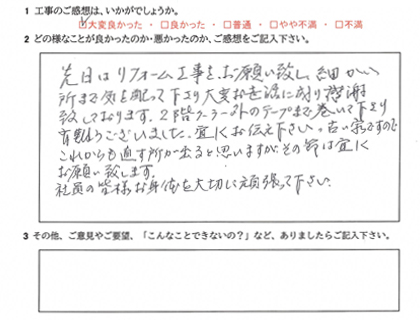 1 工事のご感想は、いかがでしょうか。
□大変良かった ・ □良かった ・ □普通 ・ □やや不満 ・ □不満
2 どの様なことが良かったのか・悪かったのか、ご感想をご記入下さい。
先日はリフォーム工事を、お願い致し、細かい
所まで気を配って下さり大変お世話に成り感謝
致しております。2階クーラー外のテープまで巻いて下さり
有難うございました。宜しくお伝え下さい。古い家ですので
これからも直す所が出ると思いますが、その節は宜しく
お願い致します。
社員の皆様お身体を大切に頑張って下さい。
3 その他、ご意見やご要望、「こんなことできないの?」など、ありましたらご記入下さい。